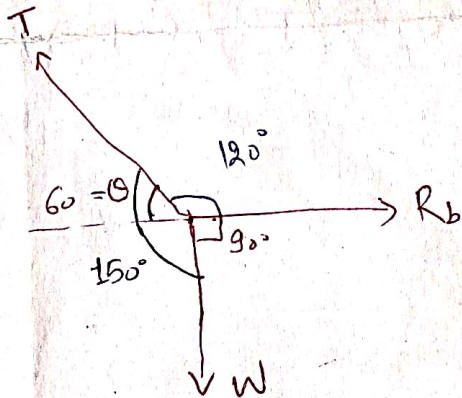 T
120°
60 = θ
R_b
90°
150°
W